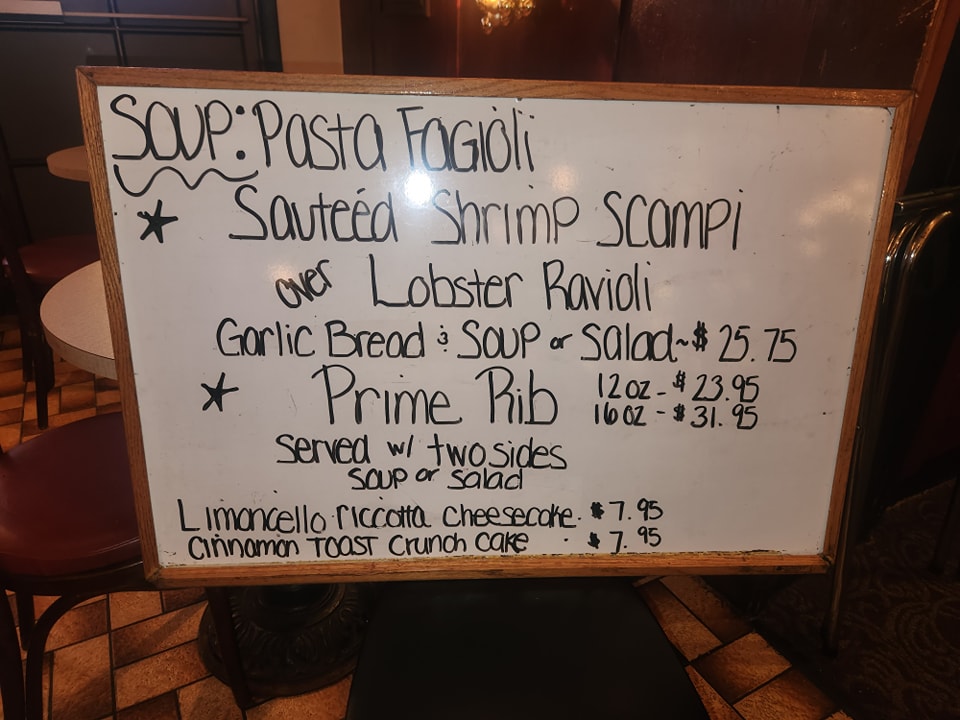 SOUP: Pasta Fagioli
* Sauteéd Shrimp Scampi
over Lobster Ravioli
Garlic Bread & SOUP or Salad ~ $25.75
* Prime Rib 12oz - $23.95
16oz - $31.95
Served w/ two sides
soup or salad
Limoncello riccotta cheesecake - $7.95
Cinnamon TOAST Crunch cake - $7.95